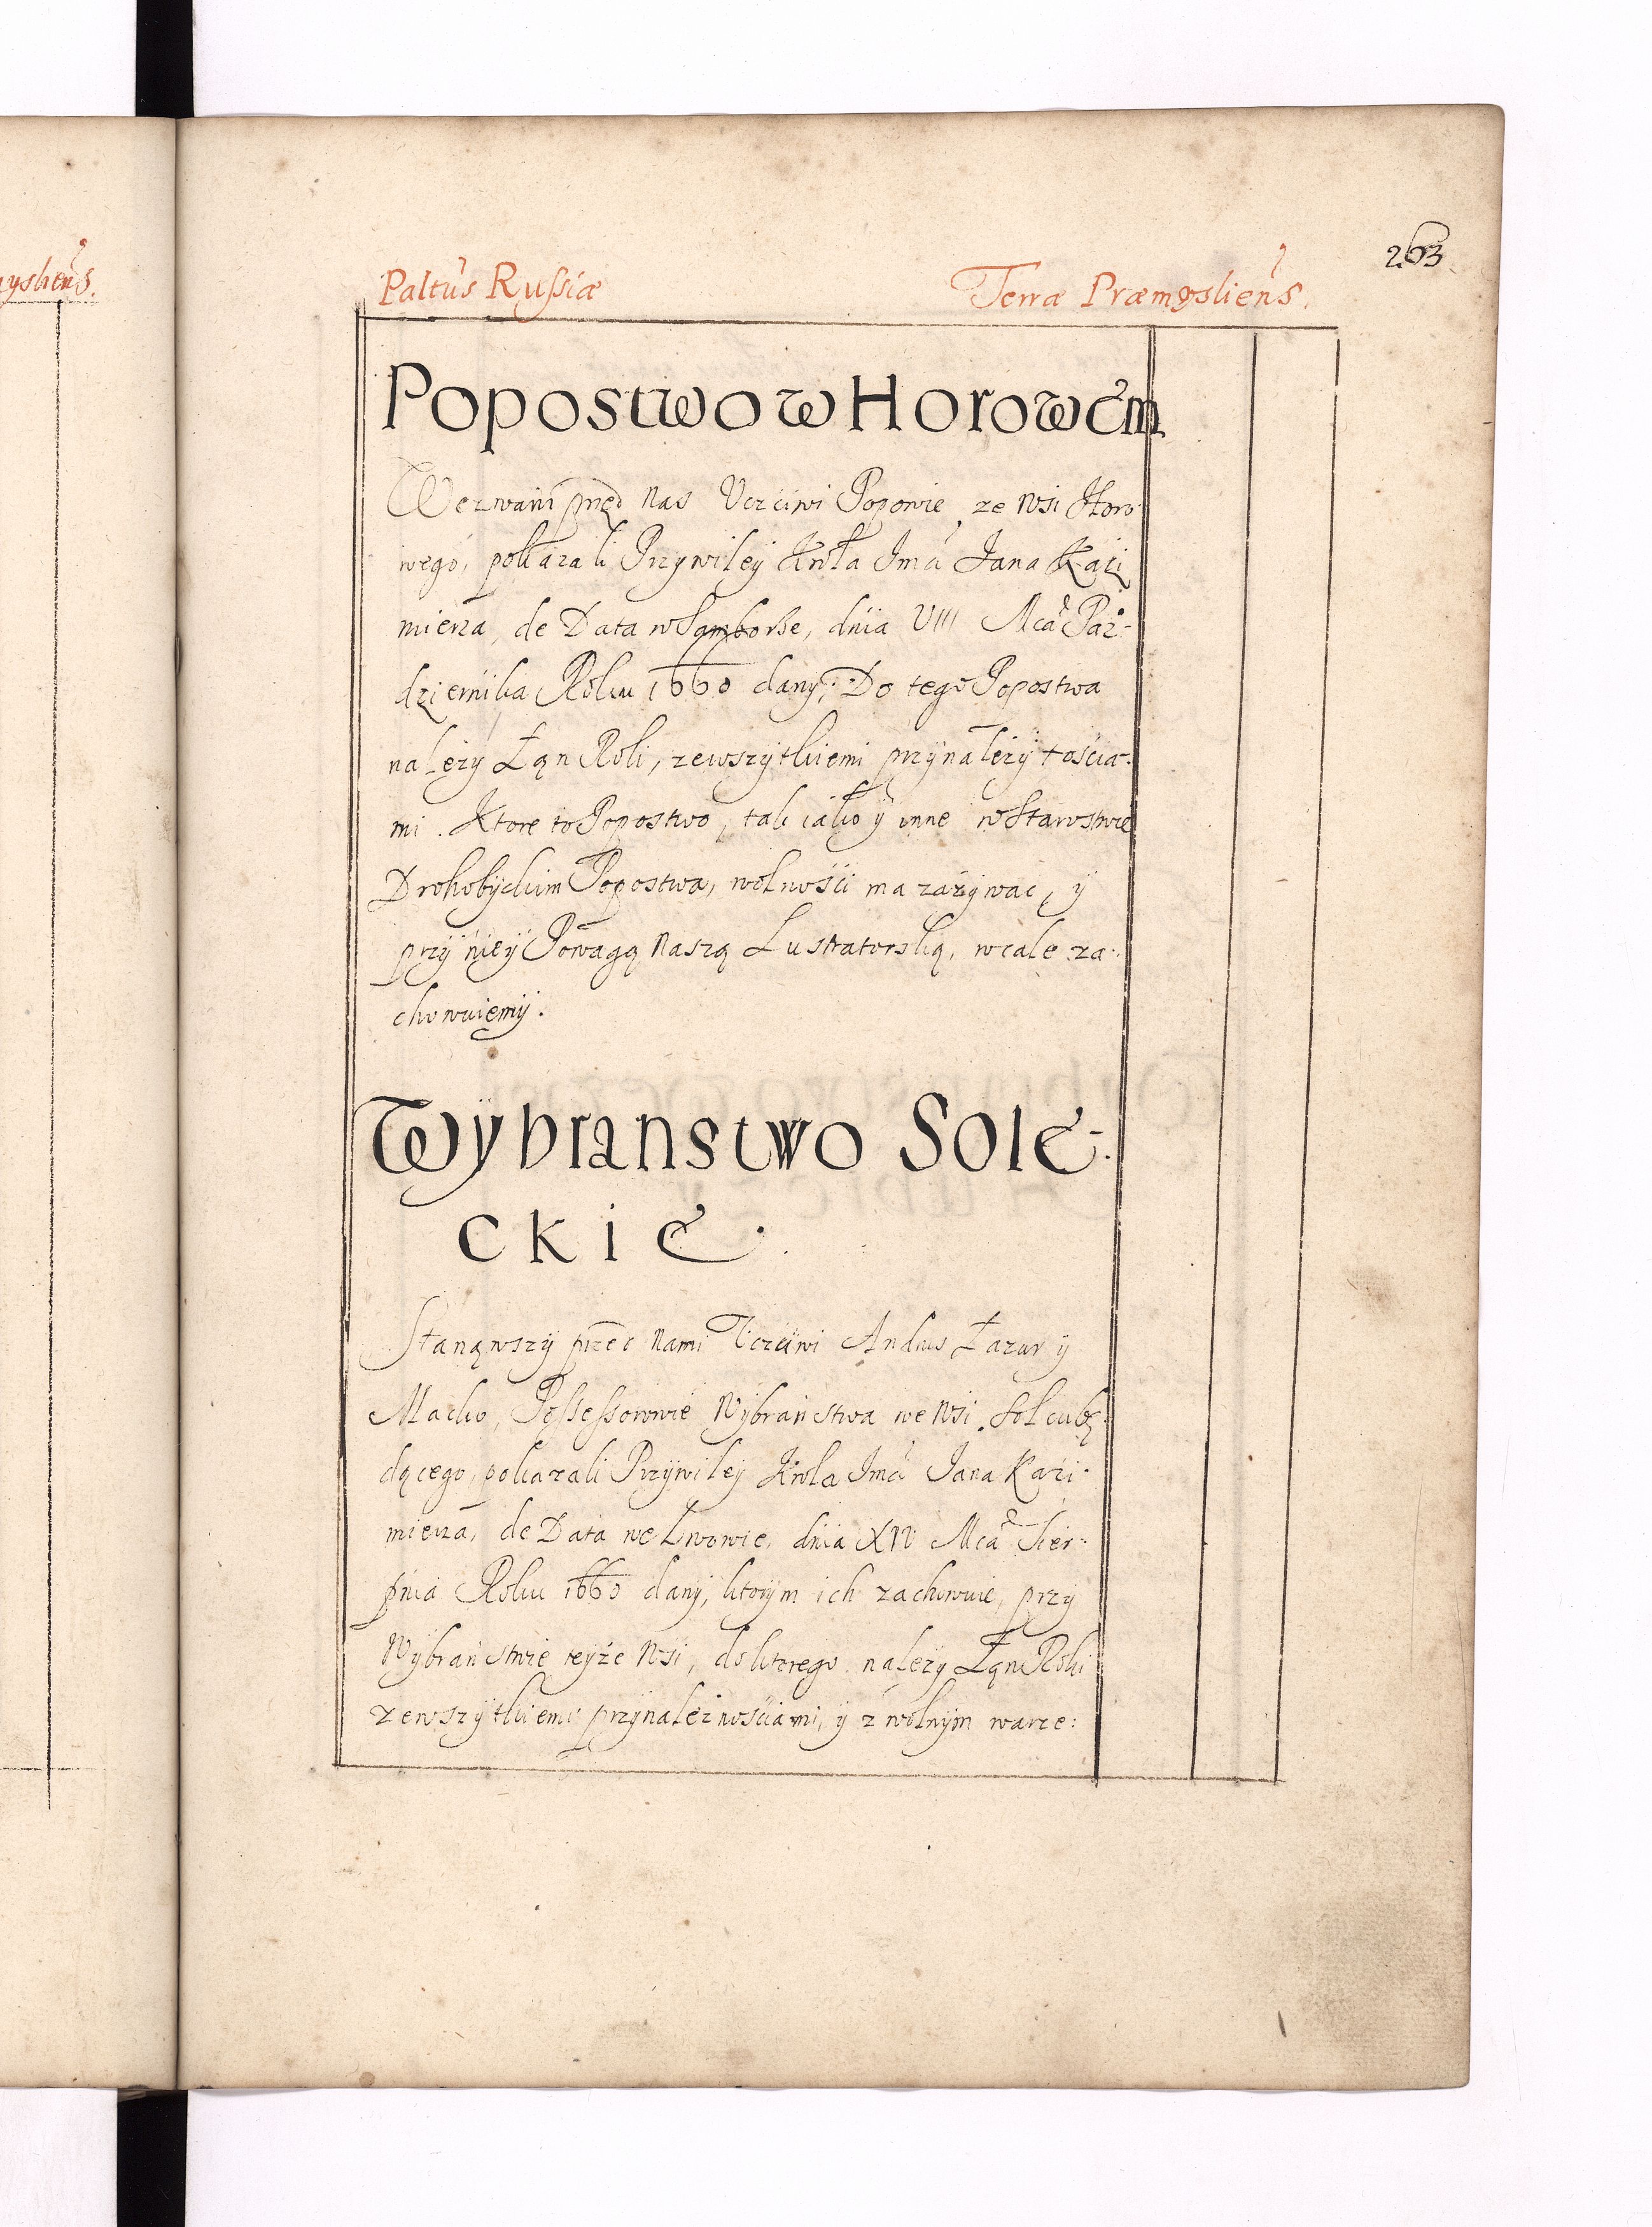 263
Paltus Russiæ Terræ Præmysliens.
Popostwo w Horowem
Wezwani przed nas Uczciwi Popowie ze wsi Horo
wego, pokazali Przywiley Krola Jmci Jana Kazi
mierza, de Data w Samborze, dnia VIII Mca Paź-
dziernika Roku 1660 dany. Do tego Popostwa
należy Łan Roli, zewszytkiemi przynależytościa-
mi. Ktore to Popostwo, tak iako y inne w Starostwie
Drohobyckim Popostwa, wolności ma zażywać, y
przy niey Powagą naszą Lustratorską, wcale za-
chowuiemy.
Wybranstwo Sole-
ckie.
Stanąwszy przed nami Uczciwi Andrus Łazur y
Macko, Possessorowie Wybraństwa we wsi Solcu bę-
dącego, pokazali Przywiley Krola Jmci Jana Kazi-
mierza, de Data we Lwowie, dnia XIV Mca Sier-
pnia Roku 1660 dany, ktorym ich zachowuie, przy
Wybraństwie teyże wsi, do ktorego należy Łan Roli
zewszytkiemi przynależnościami, y z wolnym warze:
ysliens.